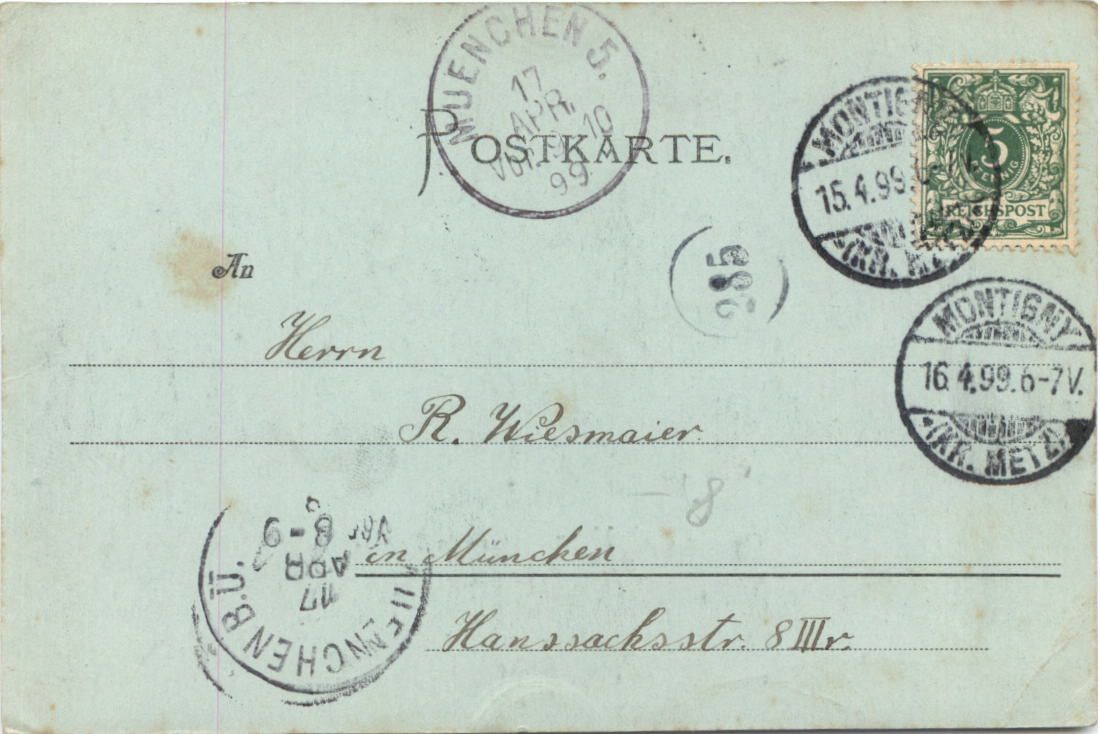 MUENCHEN 5.
17
APR.
Vor. 9-10
99
POSTKARTE.
MONTIGNY
15.4.99.
(KR. METZ)
5
PFENNIG
REICHSPOST
285
An
MONTIGNY
16.4.99.6-7V.
*(KR. METZ)
Herrn
R. Wiesmaier
8
in München
Hanssachsstr. 8 III r.
MUENCHEN B.Ü.
17
APR
Vor 8-9